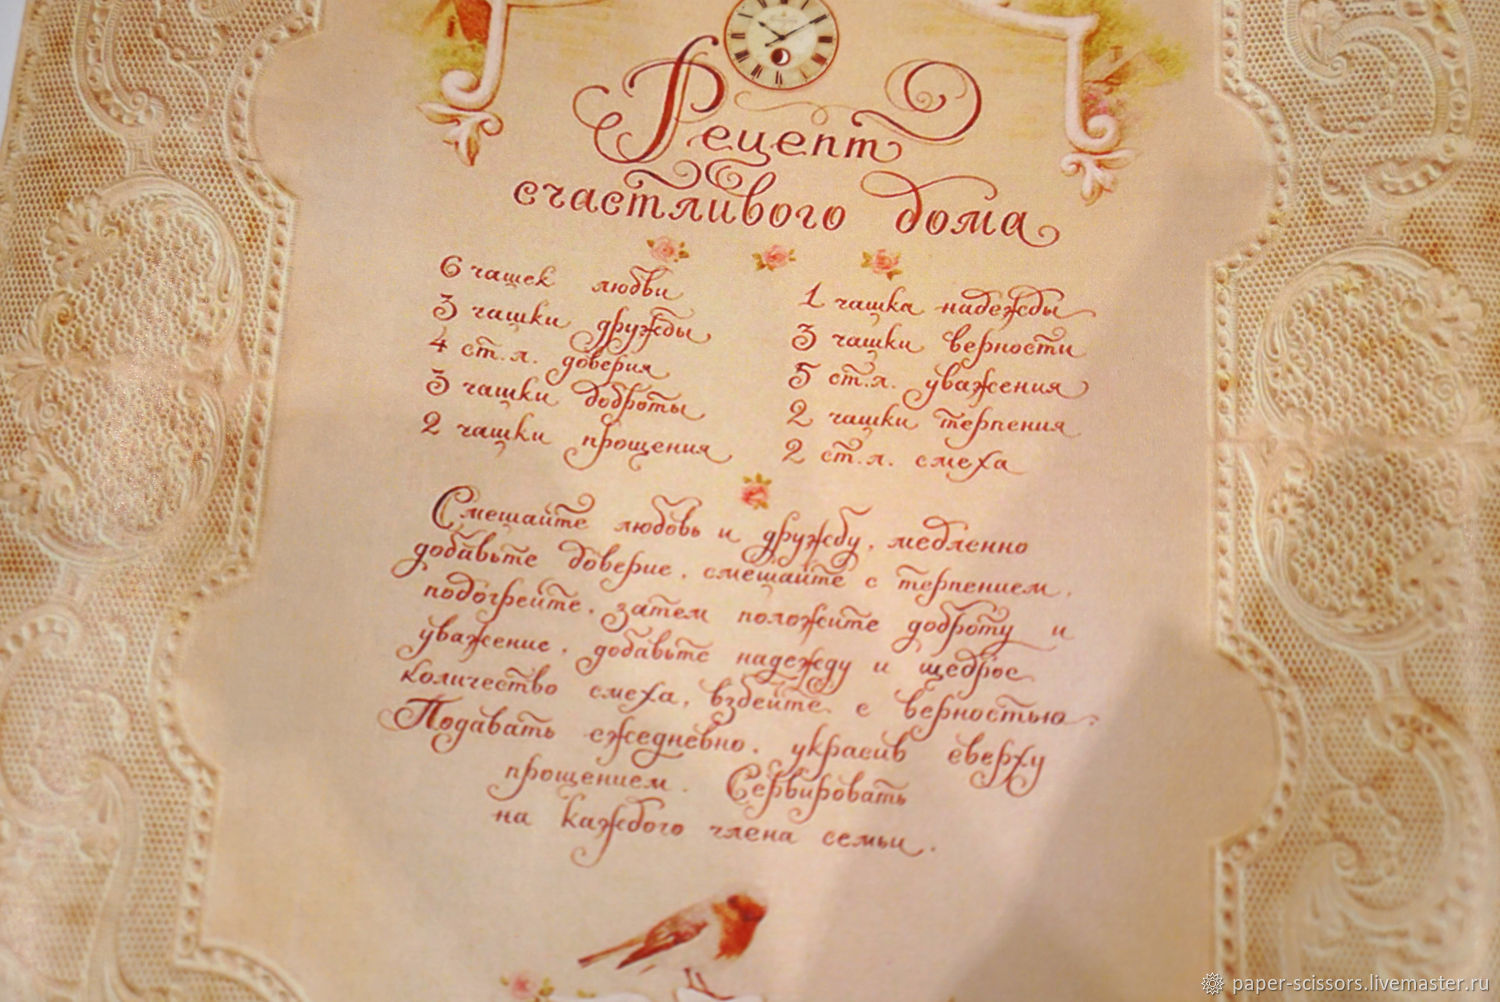 Рецепт
счастливого дома
6 чашек любви
3 чашки дружбы
4 ст. л. доверия
3 чашки доброты
2 чашки прощения
1 чашка надежды
3 чашки верности
5 ст.л. уважения
2 чашки терпения
2 ст.л. смеха
Смешайте любовь и дружбу, медленно
добавьте доверие, смешайте с терпением,
подогрейте, затем положите доброту и
уважение, добавьте надежду и щедрое
количество смеха, взбейте с верностью.
Подавать ежедневно, украсив сверху
прощением. Сервировать
на каждого члена семьи.
paper-scissors.livemaster.ru